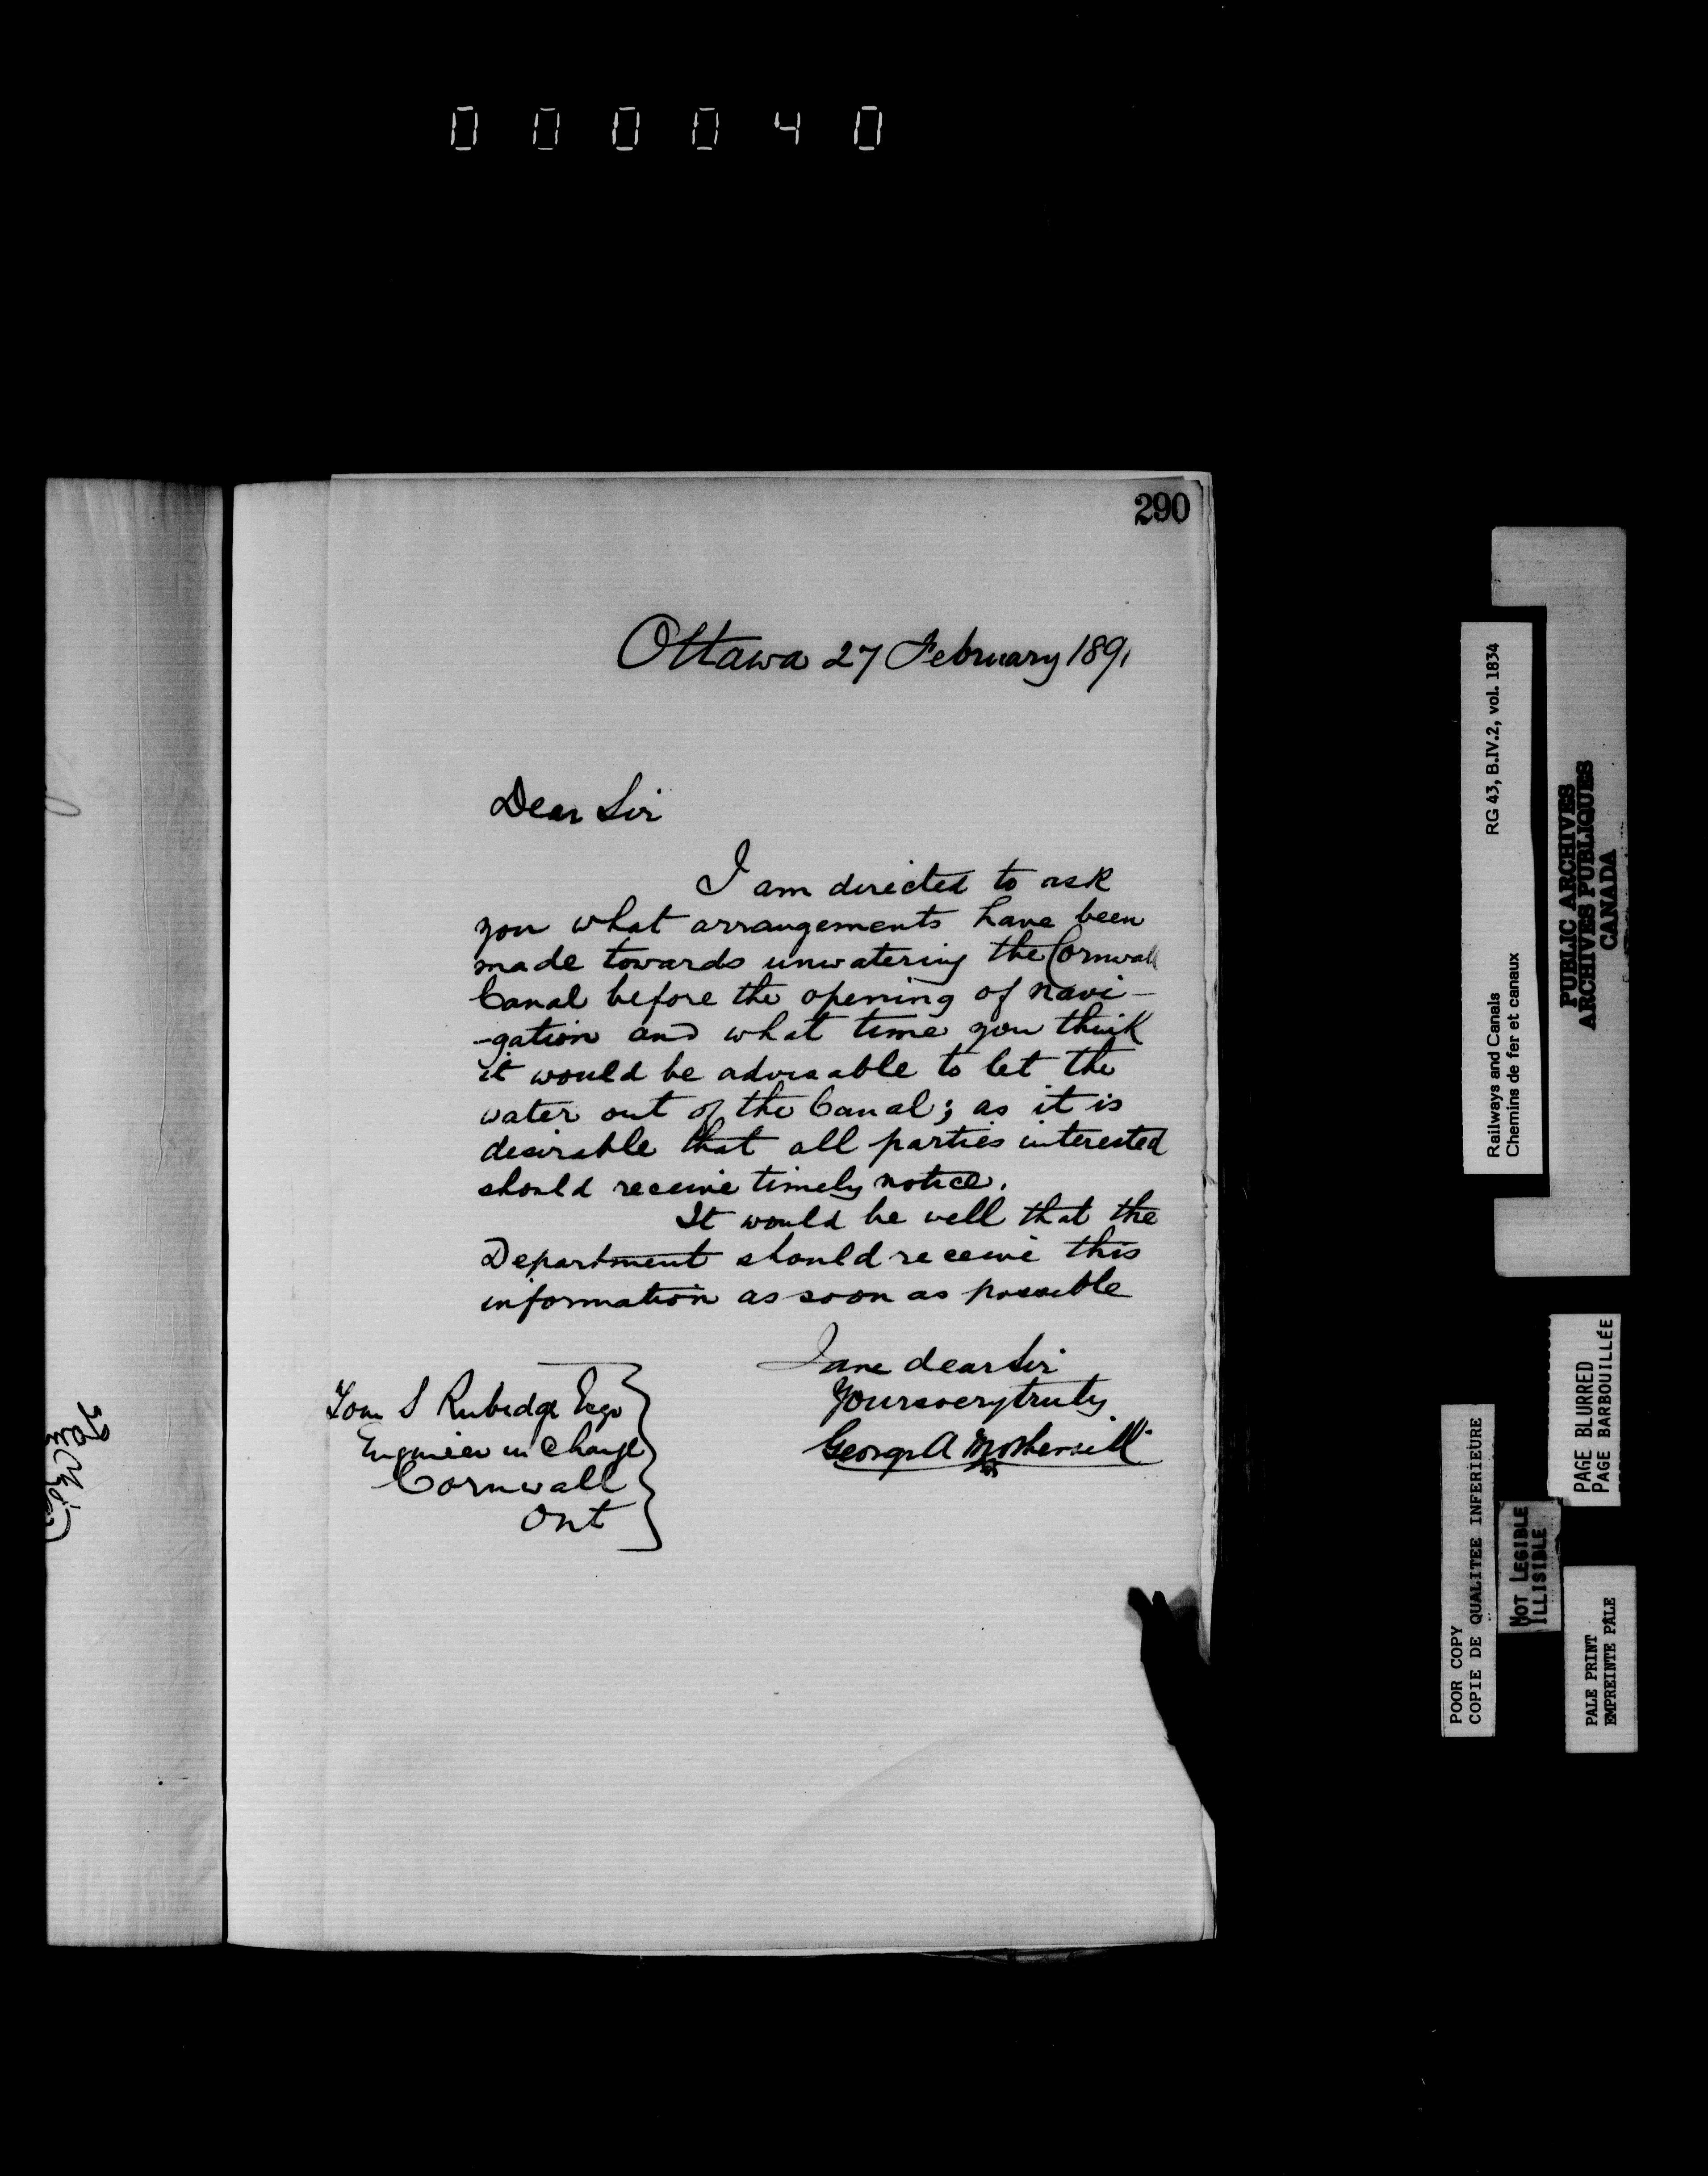 000040
290
Ottawa 27 February 1891
Dear Sir
I am directed to ask
you what arrangements have been
made towards unwatering the Cornwall
Canal before the opening of navi-
-gation and what time you think
it would be advisable to let the
water out of the Canal; as it is
desirable that all parties interested
should receive timely notice.
It would be well that the
Department should receive this
information as soon as possible
I am dear Sir
Yours very truly
George A Mothersill
Tom S Rubidge Esqr
Engineer in Charge
Cornwall
Ont
RG 43, B.IV.2, vol. 1834
Railways and Canals
Chemins de fer et canaux
PUBLIC ARCHIVES
ARCHIVES PUBLIQUES
CANADA
PAGE BLURRED
PAGE BARBOUILLÉE
POOR COPY
COPIE DE QUALITEE INFERIEURE
NOT LEGIBLE
ILLISIBLE
PALE PRINT
EMPREINTE PÂLE